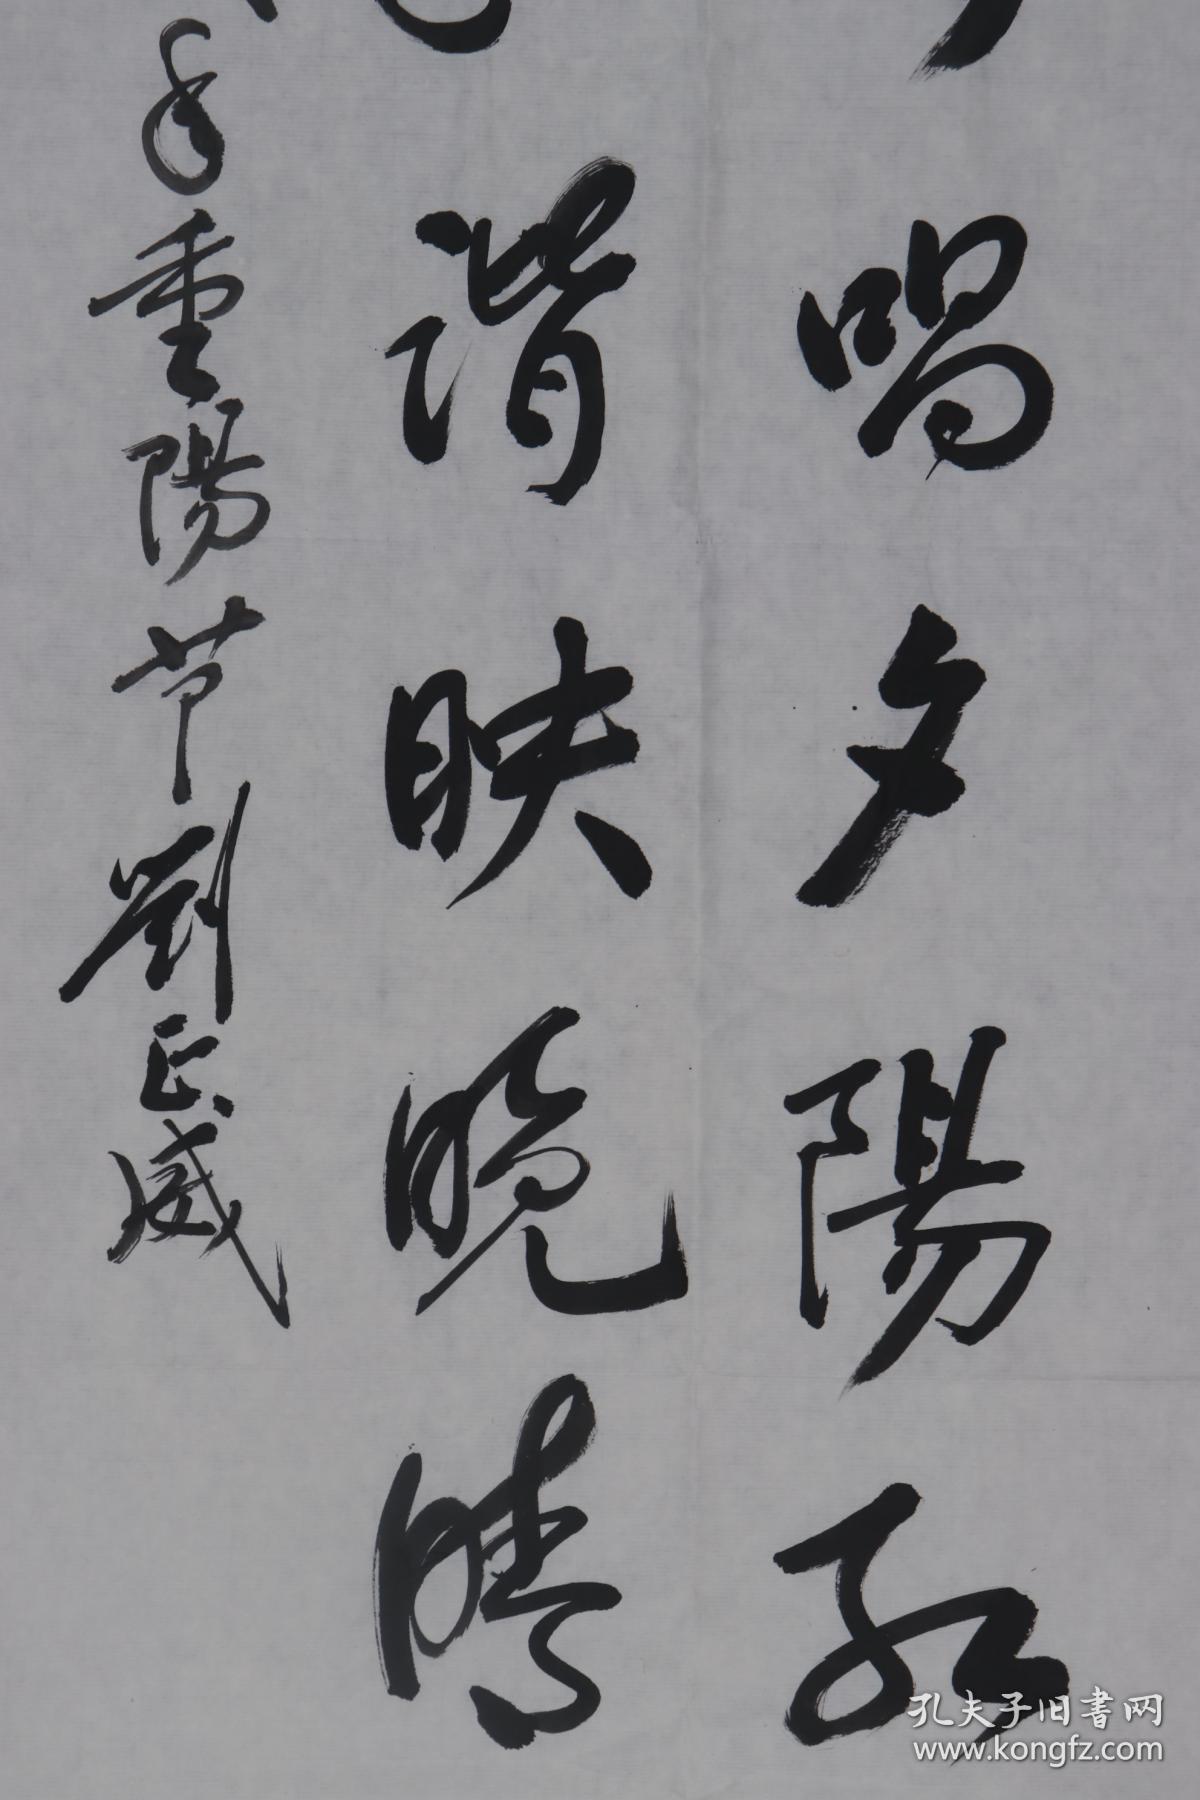 唱夕陽红
谐映晚晴
年重陽节劉正威
孔夫子旧書网
www.kongfz.com